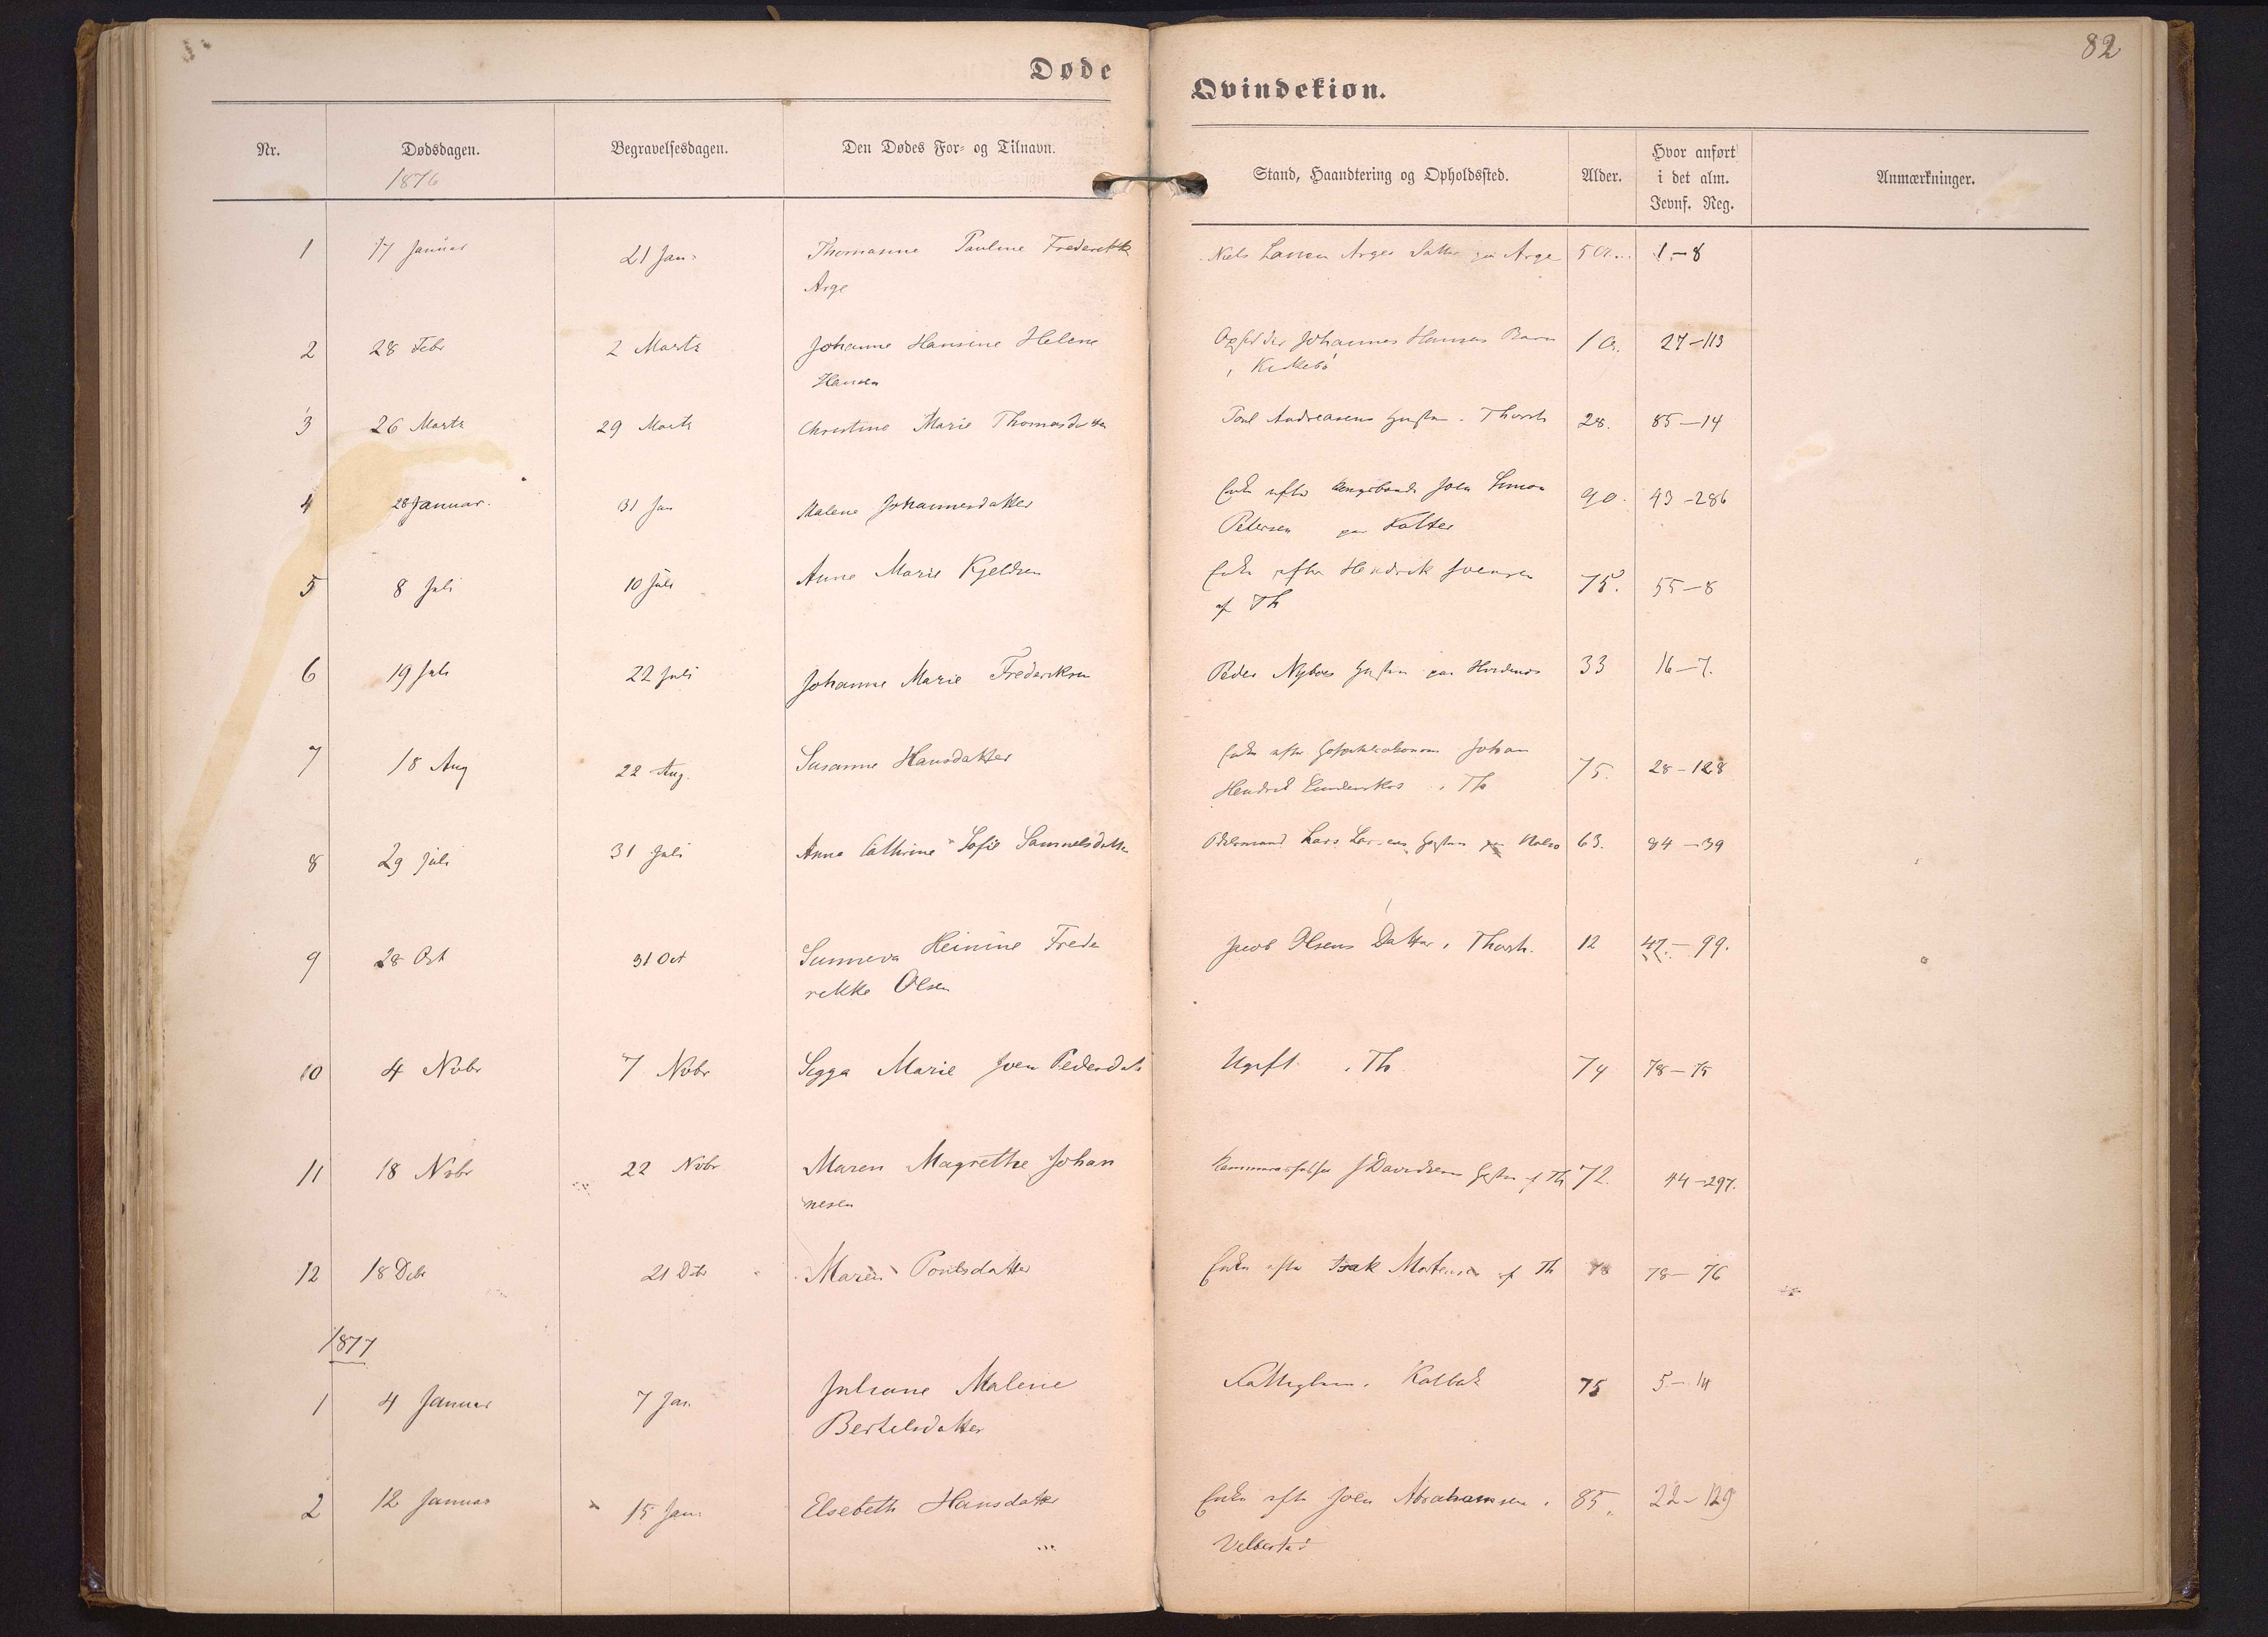 82
Døde
Qvindekiøn.
Nr. Dødsdagen. Begravelsesdagen. Den Dødes For- og Tilnavn. Stand, Haandtering og Opholdssted. Alder. Hvor anført i det alm. Jevnf. Reg. Anmærkninger.
1876
1 17 Januar 21 Jan: Thomasine Pauline Frederikke Niels Arges Datter Arge 5 1-8
Arge
2 28 Febr 2 Marts Johanne Hansine Helene Johannes Hansens Barn 1 27-113
Hansen i Kirkebø
3 26 Marts 29 Marts Christine Marie Thomasdatter Poul Andreasens Hustru i Thorsh 28. 85-14
4 28 Januar. 31 Jan Malene Johannesdatter Enke efter Kongsbonde Joen Simon 90. 43-286
Petersen paa Kolter
5 8 Juli 10 Juli Anne Marie Kjeldsen Enke efter Hendrik Joensen 75. 55-8
af Th
6 19 Juli 22 Juli Johanne Marie Frederiksen Peder Nyboes Hustru paa 33 16-7.
7 18 Aug 22 Aug. Susanne Hansdatter Enke efter Johan 75. 28-128
Hendrik i Th
8 29 Juli 31 Juli Anna Cathrine Sofie Samuelsdatter Odelsmand Lars Larsens Hustru paa Nolsø 63. 84-39
9 28 Oct 31 Oct Sunneva Heinine Frede Jacob Olsens Datter i Thorsh. 12 47.-99.
rikke Olsen
10 4 Nvbr 7 Nvbr Sigga Marie Joen Pedersdatr Ugift i Th 74 78-75
11 18 Nvbr 22 Nvbr Maren Magrethe Johan J Davidsens Hustru af Th 72. 44-297.
nesen
12 18 Debr 21 Dbr Maren Poulsdatter Enke efter Isak Mortensen af Th 78 78-76
1877
1 4 Januar 7 Jan Juliane Malene Fattiglem i Kalbak 75 5-14
Bertelsdatter
2 12 Januar 15 Jan: Elsebeth Hansdatter Enke efter Joen Abrahamsen i 85. 22-129
Velbestad